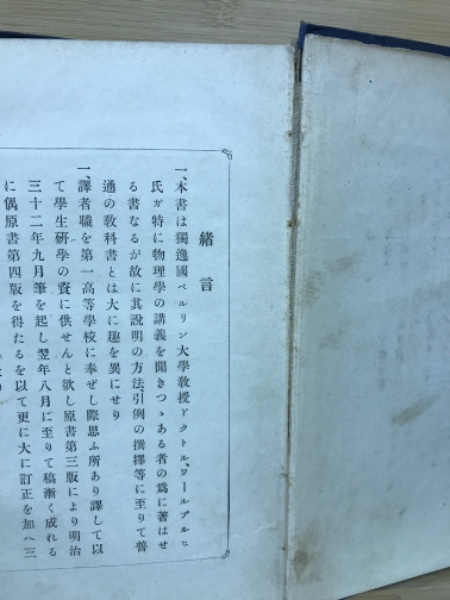 緒言
一、本書は獨逸國ベルリン大學教授ドクトル、ワールブルヒ
氏が特に物理學の講義を聞きつゝある者の爲に著はせ
る書なるが故に其說明の方法、引例の撰擇等に至りて普
通の敎科書とは大に趣を異にせり
一、譯者職を第一高等學校に奉ぜし際思ふ所あり譯して以
て學生硏學の資に供せんと欲し原書第三版により明治
三十二年九月筆を起し翌年八月に至りて稿漸く成れる
に偶原書第四版を得たるを以て更に大に訂正を加へ三